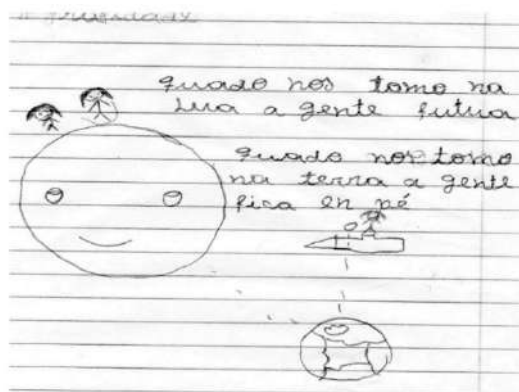 quado nos tomo na
lua a gente futua
quado nos tomo
na terra a gente
fica en pé